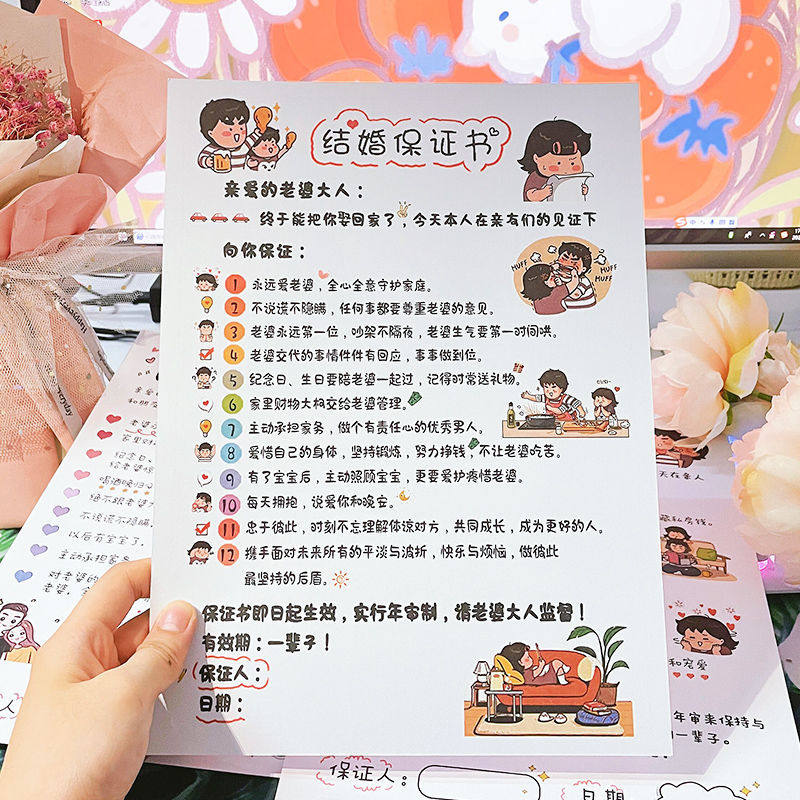 结婚保证书
亲爱的老婆大人：
终于能把你娶回家了，今天本人在亲友们的见证下
向你保证：
HUFF
MUFF
MUFF
1 永远爱老婆，全心全意守护家庭。
2 不说谎不隐瞒，任何事都要尊重老婆的意见。
3 老婆永远第一位，吵架不隔夜，老婆生气要第一时间哄。
4 老婆交代的事情件件有回应，事事做到位。
5 纪念日、生日要陪老婆一起过，记得时常送礼物。
6 家里财物大权交给老婆管理。
7 主动承担家务，做个有责任心的优秀男人。
8 爱惜自己的身体，坚持锻炼，努力挣钱，不让老婆吃苦。
9 有了宝宝后，主动照顾宝宝，更要爱护疼惜老婆。
10 每天拥抱，说爱你和晚安。
11 忠于彼此，时刻不忘理解体谅对方，共同成长，成为更好的人。
12 携手面对未来所有的平淡与波折，快乐与烦恼，做彼此
最坚持的后盾。
保证书即日起生效，实行年审制，请老婆大人监督！
有效期：一辈子！
保证人：
日期：
家里财
纪念日、
给老婆
喝酒晚归
绝不跟老婆
不说谎不隐瞒，
以后有宝宝了
主动承担家务
对老婆的
老婆，
天在亲人
藏私房钱。
和宠爱
年审来保持与
一辈子。
保证人：
日期